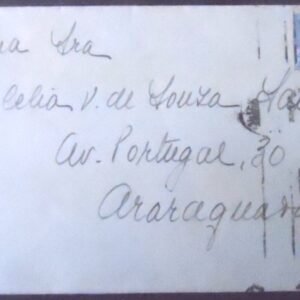 na Sra
Celia V. de Souza
Av. Portugal, 30
Araraquara